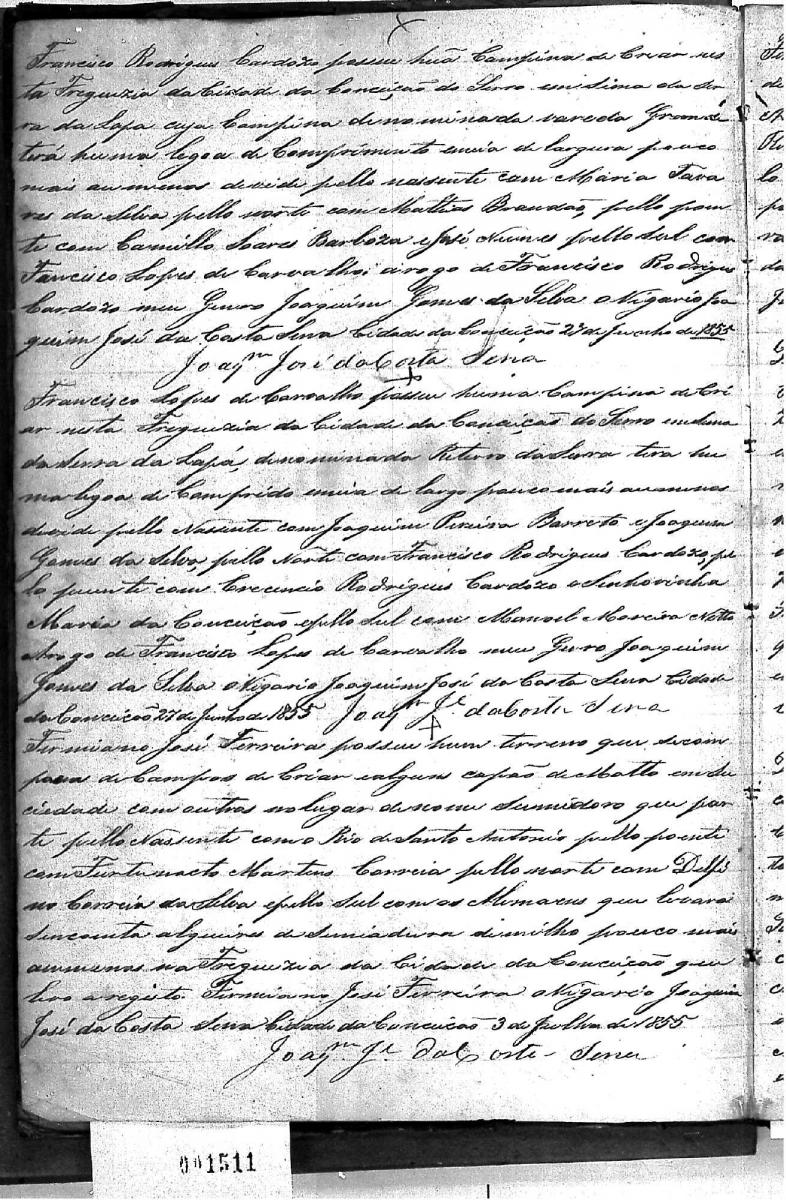 Francisco Rodrigues Cardozo possue huã Campina de Crear nes
ta Freguezia da Cidade da Conceição do Serro em sima da Ser
ra da Lapa cuja Campina denominada vareda Grande
terá huma legoa de Comprimento emeia de largura pouco
mais aumenos devide pello nassente com Maria Tava
res da Silva pello norte com Mathias Brandão, pello poen
te com Camillo Soares Barboza e José Nunes pello Sul com
Francisco Lopes de Carvalho; arogo de Francisco Rodrigues
Cardozo meu Genro Joaquim Gomes da Silva o Vigario Joa
quim José da Costa Sena Cidade da Conceição 27 de Junho de 1855
Joaqm José da Costa Sena
Francisco Lopes de Carvalho possue huma Campina de Cri
ar nesta Freguezia da Cidade da Conceição do Serro em sima
da Serra da Lapá, denominada Retiro da Serra tera hu
ma legoa de Comprido emeia de largo pouco mais aumenos
devide pello Nassente com Joaquim Pereira Barreto e Joaquim
Gomes da Silva, pello Norte com Francisco Rodrigues Cardozo, pe
lo puente com Crecencio Rodrigues Cardozo e Senhorinha
Maria da Conceição epello Sul com Manoel Moreira Netto
Arogo de Francisco Lopes de Carvalho meu Genro Joaquim
Gomes da Silva o Vigario Joaquim José da Costa Sena Cidade
da Conceição 27 de Junho de 1855 Joaqm Je. da Costa Sena
Firmiano José Ferreira possue hum terreno que secom
poem de Campos de Criar ealguns capão de Matto em So
ciedade com outros no lugar de nome Sumidoro que par
te pello Nassente com o Rio de Santo Antonio pello poente
com Furtunacto Martins Correia pello norte com Delfi
no Correia da Silva epello Sul com os que levará
sincoenta alqueires de Semiadura de milho pouco mais
aumenos na Freguezia da Cidade da Conceição que
levo a registo. Firmiano José Ferreira o Vigario Joaquim
José da Costa Sena Cidade da Conceição 3 de Julho de 1855
Joaqm Je. da Costa Sena
001511